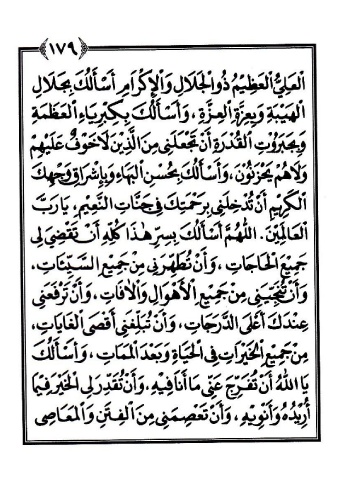 ١٧٩
الْعَلِيُّ الْعَظِيْمُ ذُو الْجَلَالِ وَالْإِكْرَامِ أَسْأَلُكَ بِجَلَالِ
الْهَيْبَةِ وَبِعِزَّةِ الْعِزَّةِ، وَأَسْأَلُكَ بِكِبْرِيَاءِ الْعَظَمَةِ
وَبِجَبَرُوْتِ الْقُدْرَةِ أَنْ تَجْعَلَنِى مِنَ الَّذِيْنَ لَا خَوْفٌ عَلَيْهِمْ
وَلَا هُمْ يَحْزَنُوْنَ، وَأَسْأَلُكَ بِحُسْنِ الْبَهَاءِ وَبِإِشْرَاقِ وَجْهِكَ
الْكَرِيْمِ أَنْ تُدْخِلَنِى بِرَحْمَتِكَ فِى جَنَّاتِ النَّعِيْمِ، يَا رَبَّ
الْعَالَمِيْنَ. اَللّٰهُمَّ أَسْأَلُكَ بِسِرِّ هٰذَا كُلِّهِ أَنْ تَقْضِىَ لِى
جَمِيْعَ الْحَاجَاتِ، وَأَنْ تُطَهِّرَنِى مِنْ جَمِيْعِ السَّيِّئَاتِ،
وَأَنْ تُنْجِيَنِى مِنْ جَمِيْعِ الْأَهْوَالِ وَالْآفَاتِ، وَأَنْ تَرْفَعَنِى
عِنْدَكَ أَعْلَى الدَّرَجَاتِ، وَأَنْ تُبَلِّغَنِى أَقْصَى الْغَايَاتِ،
مِنْ جَمِيْعِ الْخَيْرَاتِ فِى الْحَيَاةِ وَبَعْدَ الْمَمَاتِ، وَأَسْأَلُكَ
يَا اَللّٰهُ أَنْ تُفَرِّجَ عَنِّى مَا أَنَا فِيْهِ، وَأَنْ تُقَدِّرَ لِى الْخَيْرَ فِيْمَا
أُرِيْدُهُ وَأَنْوِيْهِ، وَأَنْ تَعْصِمَنِى مِنَ الْفِتَنِ وَالْمَعَاصِى